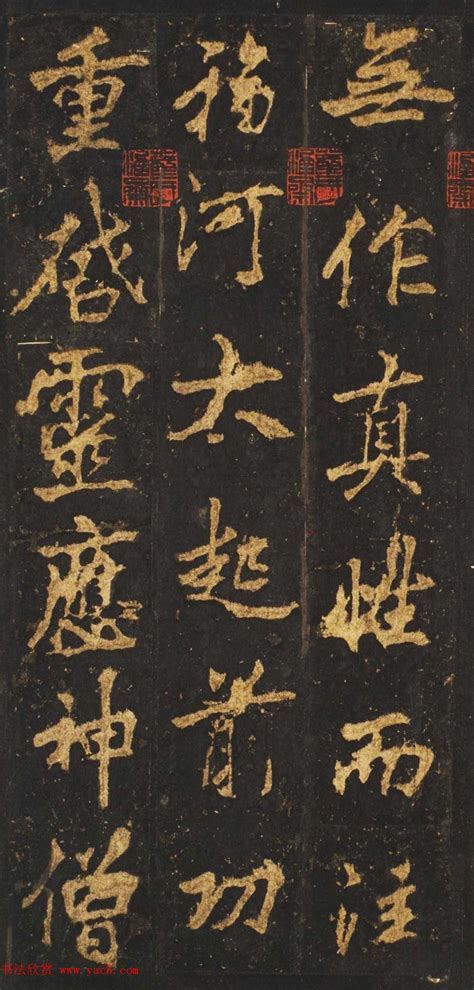 無作真性而注
福河大起前功
重啓靈應神僧
书法欣赏 www.yac8.com